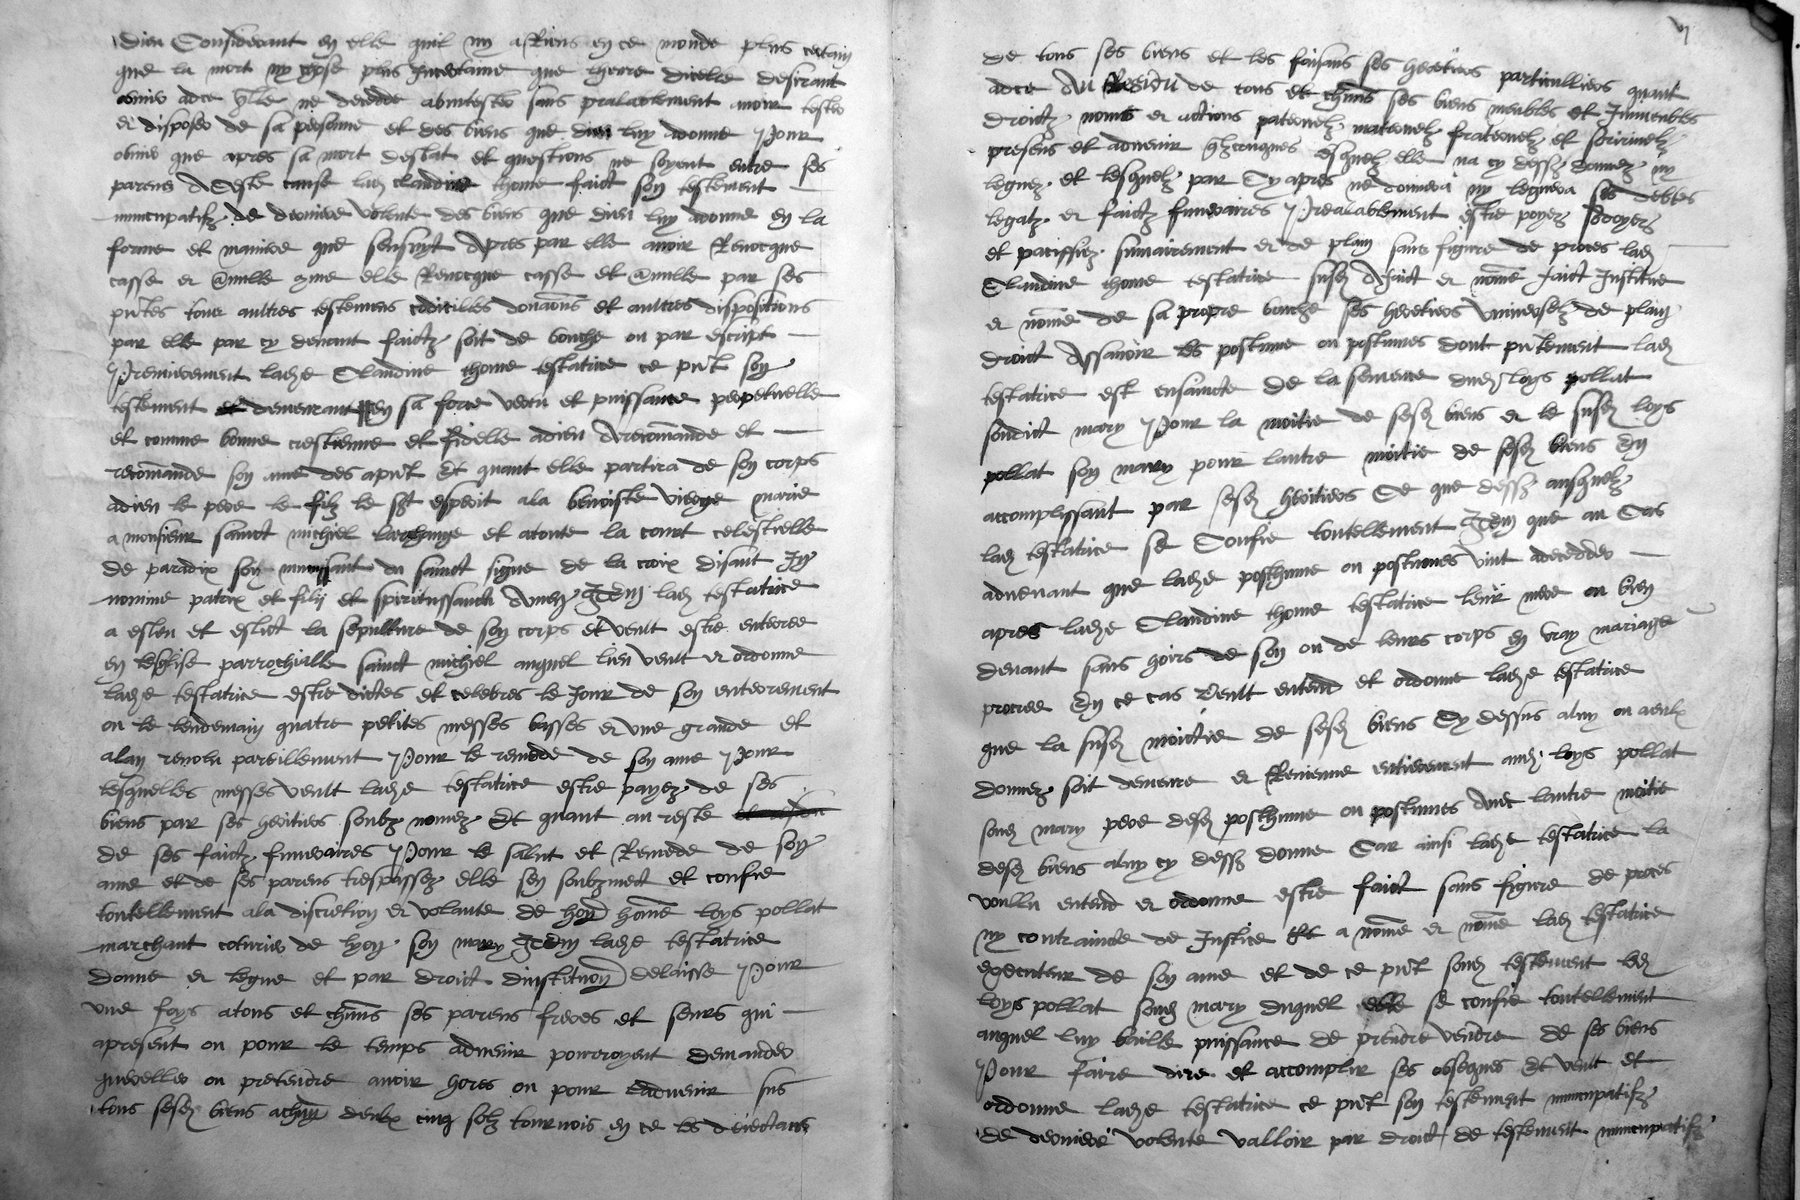 dieu Considerant en elle quil ny a Riens en ce monde plus certain
que la mort ny chose plus Incertaine que lheure dicelle desirant
ne decede abintestes sans prealablement avoir teste
et disposer de sa personne et des biens que dieu luy adonne Pour
obvier que apres sa mort desbat et questions ne soyent entre ses
parens A Ceste cause lad claudine thome faict son testement
nuncupatifz de derniere volente des biens que dieu luy adonne en la
forme et maniere que sensuyt Apres par elle avoir Revocque
casse et Anulle come elle Revocque casse et Anulle par ses
pntes tour aultres testemens codicilles donaons et aultres dispositions
par elle par cy devant faictz soit de bouche ou par escript
Premierement ladte Claudine thome testatrice ce pnt son
testement demeurant en sa force vertu et puissance perpetuelle
et comme bonne crestienne et fidelle adieu Arecomande et
recomande son ame des apnt Et quant elle partira de son corps
adieu le pere le filz le sct esperit ala benoiste vierge marie
a monsieur sainct michiel larchange et atoute la court celestielle
de paradix son munissant du sainct signe de la croix disant In
nomine patris et filij et spiritussancti Amen Item lad testatrice
a esleu et eslict la sepulture de son corps et veult estre enterree
en lesglise parrochialle sainct michiel auquel lieu veult et ordonne
ladte testatrice estre dictes et celebres le Jour de son enterrement
ou le lendemain quatre petites messes basses et une grande et
alan revolu pareillement Pour le remede de son ame Pour
lesquelles messes veult ladte testatrice estre payez de ses
biens par ses heritiers soubz nomez Et quant au reste
de ses faictz funeraires Pour le salut et Remede de son
ame et de ses parens trespassez elle sen soubzmect et confie
toutellement ala discretion et volante de hon home loys pollat
marchant coturier de lyon son mary Item ladte testatrice
donne et legue et par droict dinstitution delaisse Pour
une foys atous et chuns ses parens freres et seurs qui
apresent ou pour le temps advenir pourroyent demander
quereller ou pretendre avoir hores ou pour ladvenir sus
tous sesd biens achun deulx cinq solz tournois en ce les dejectans
de tous ses biens et les faisans ses heritiers particulliers quant
adce Au Residu de tous et chuns ses biens meubles et Immeubles
droictz noms et actions paternelz maternelz fraternelz et sororinelz
presens et advenir qlzconques esquelz elle na cy dessz donnez ny
leguez et lesquelz par Cy apres ne donnera ny leguera ses debtes
legatz et faictz funeraires Prealablement estre poyez
et paciffiez sumairement et de plain sans figure de proces lad
Claudine thome testatrice susd A faict et nome faict Institue
et nome de sa propre bouche ses heretiers Universelz de plain
droict Assavoir les postume ou postumes dont pntement lad
testatrice est ensaincte de la semence dud loys pollat
soudict mary Pour la moitie de sesd biens et le susd loys
pollat son mary pour laultre moitie de sesd biens En
accomplissant par sesd heritiers Ce que dessz ausquelz
lad testatrice se Confie toutellement Item que au Cas
advenant que ladte posthume ou postumes vint adeceder
apres ladte Claudine thome testatrice leur mere ou bien
devant sans hoirs de son ou de leurs corps en vray mariage
procree En ce cas Veult entend et ordonne ladte testatrice
que la susd moictie de sesd biens Cy dessus aluy ou aeulx
donnez soit demeure et Revienne entierement aud loys pollat
soud mary pere desd posthume ou postumes Avec laultre moitie
desd biens aluy cy dessz donne Car ainsi ladte testatrice la
voullu entend et ordonne estre faict sans figure de proces
ny contraincte de Justice Et a nome et nome lad testatrice
executeur de son ame et de ce pnt soud testement led
loys pollat soud mary duquel elle se confie toutellement
auquel luy baille puissance de prendre vendre de ses biens
Pour faire dire et accomplir ses obseques Et veult et
ordonne ladte testatrice ce pnt son testement nuncupatifz
de derniere volente valloir par droict de testement nuncupatifz